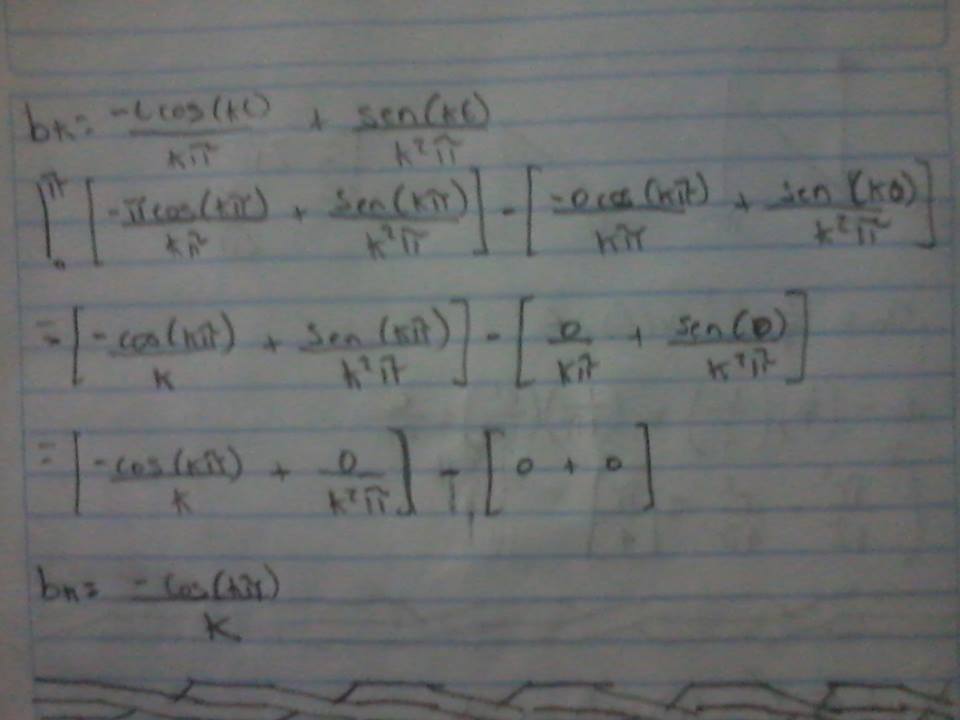 bₖ= -t cos(kt)/kπ + sen(kt)/k²π
|₀^π [-π cos(kπ)/kπ + sen(kπ)/k²π] - [-0 cos(kπ)/kπ + sen(k0)/k²π]
= [-cos(kπ)/k + sen(kπ)/k²π] - [0/kπ + sen(0)/k²π]
= [-cos(kπ)/k + 0/k²π] - [0 + 0]
bₖ= -cos(kπ)/k